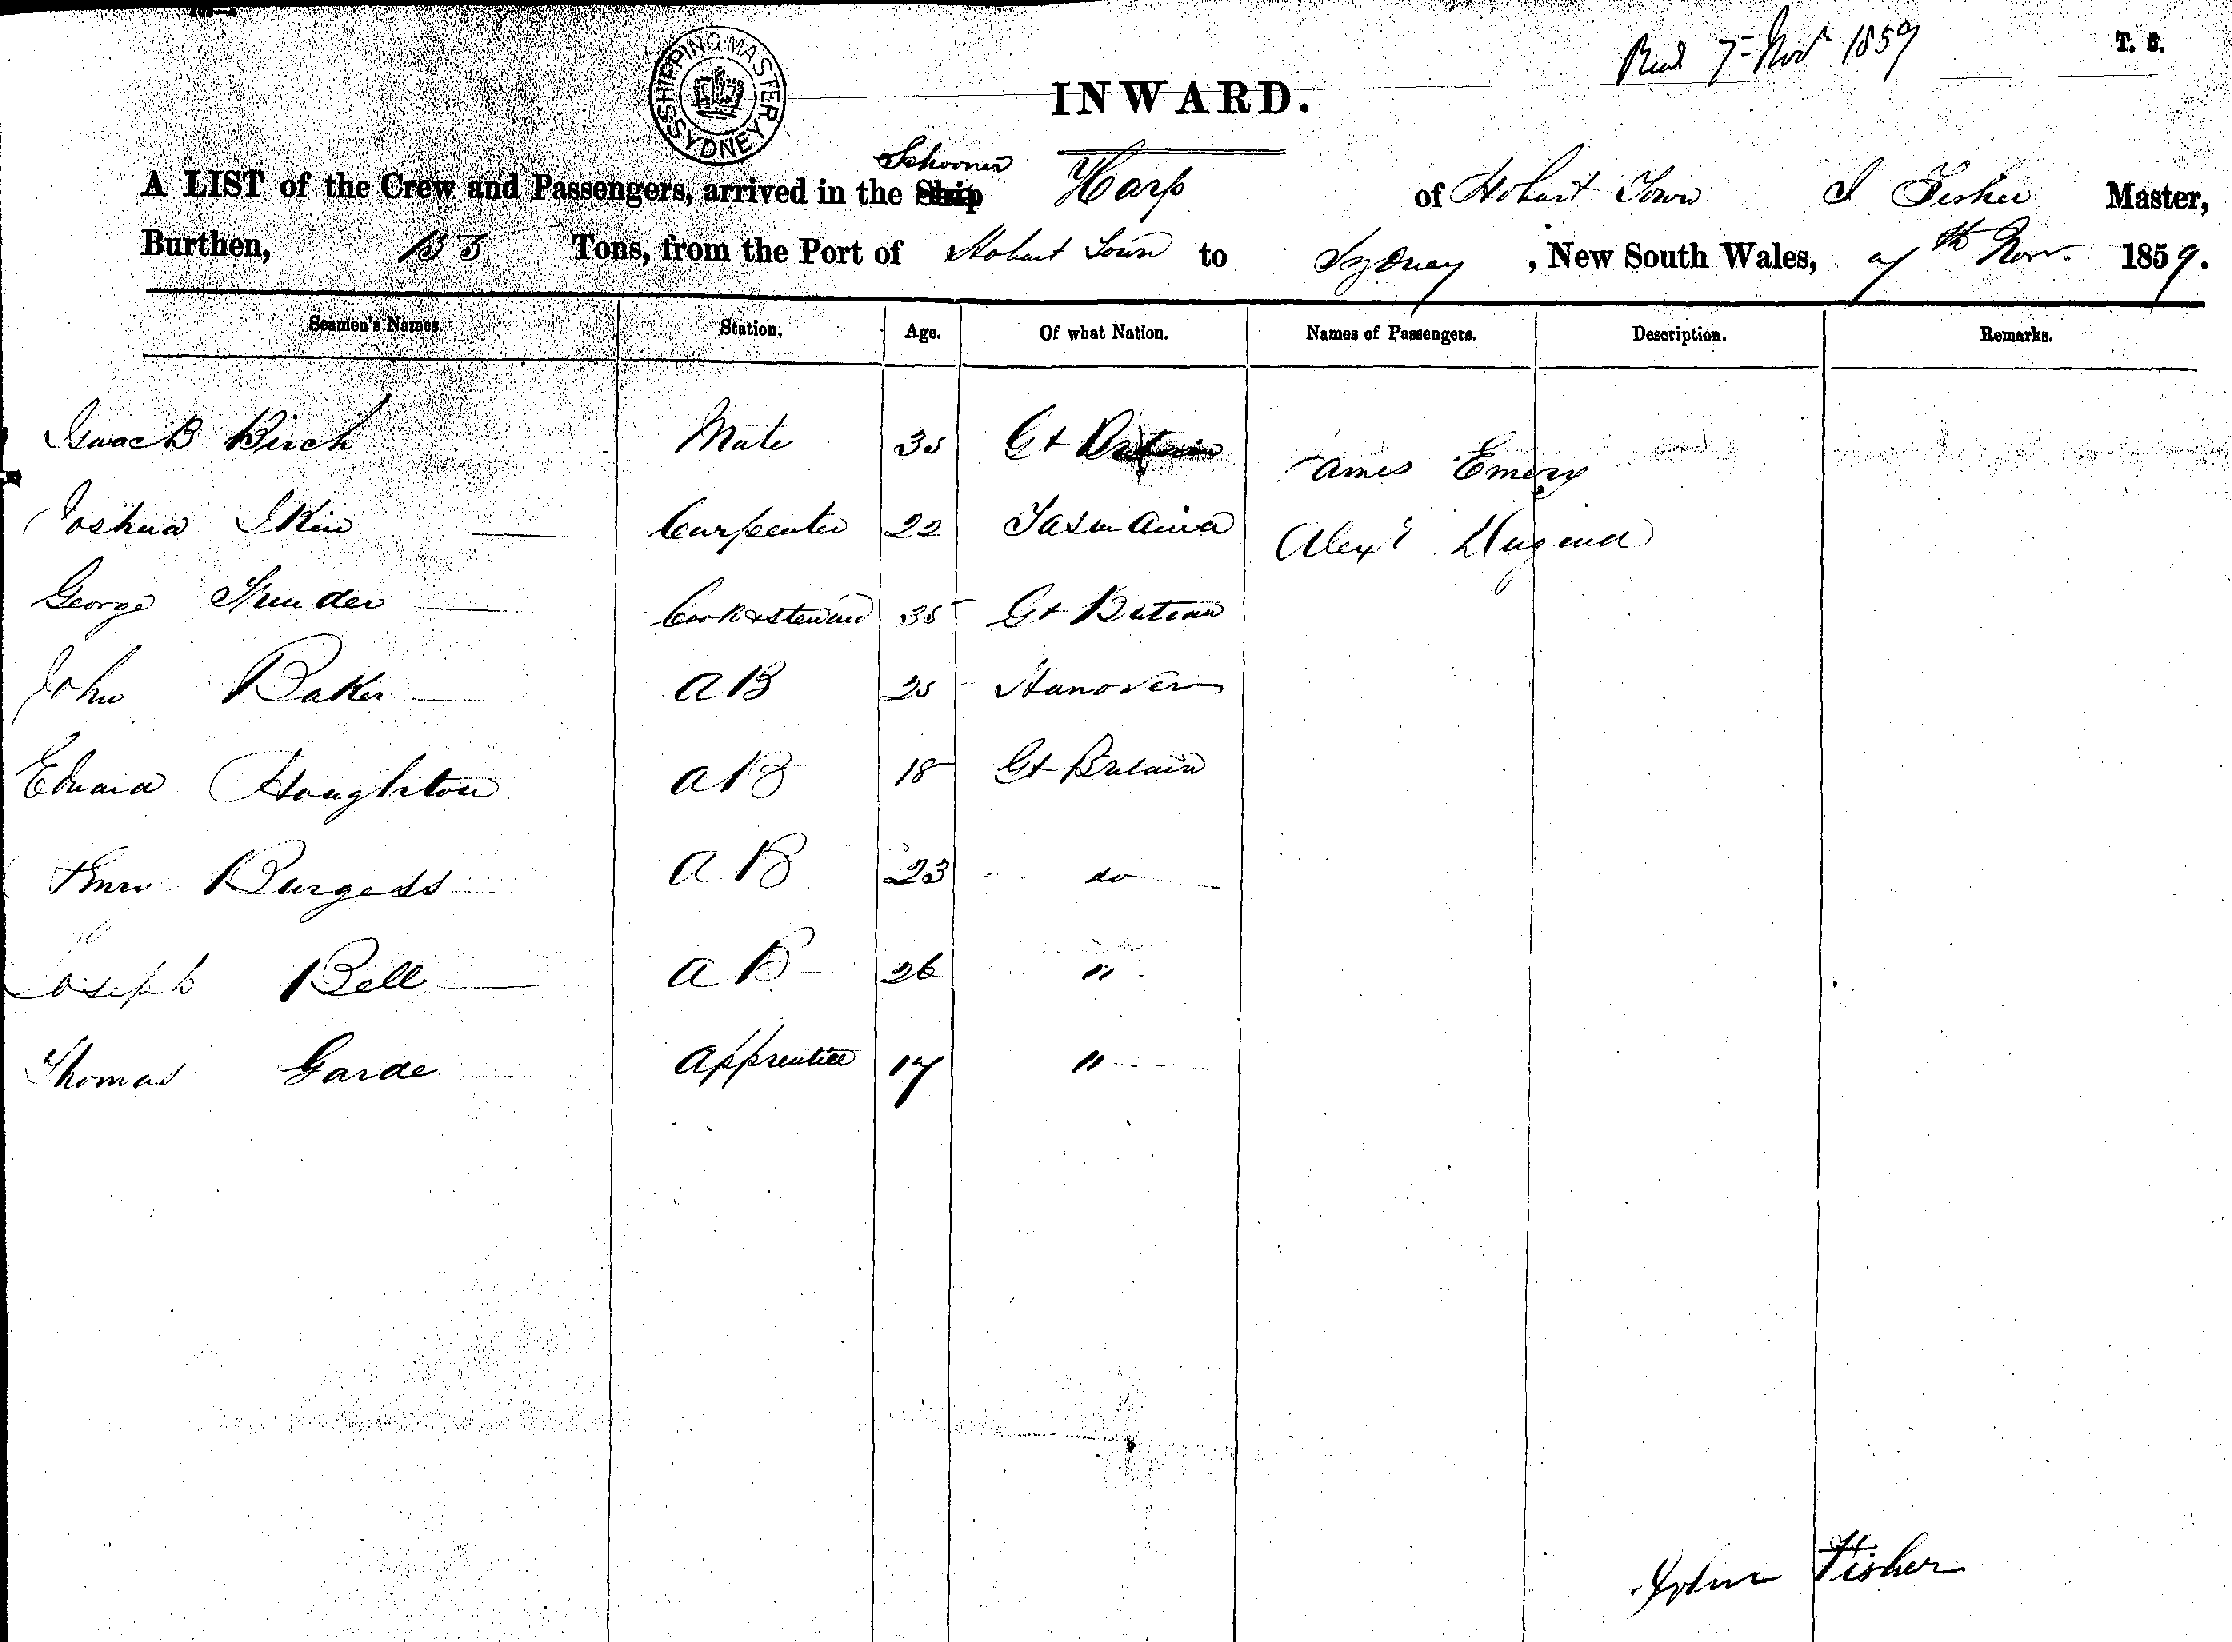 Recd 7 Novr 1859
T. S.
SHIPPING MASTER SYDNEY
INWARD.
Schooner
A LIST of the Crew and Passengers, arrived in the Ship Harp of Hobart Town J Fisher Master,
Burthen, Tons, from the Port of Hobart Town to Sydney, New South Wales, 7th Novr. 1859.
Seamen's Names. Station. Age. Of what Nation. Names of Passengers. Description. Remarks.
Isaac B Birch Mate 35 Gt Britain James Emery
Joshua Skin Carpenter 22 Tasmania Alexr
George Cook & Steward 35 Gt Britain
John Baker AB 25 Hanover
Edward Houghton AB 18 Gt Britain
Henry Burgess AB 23 do
Joseph Bell AB 26 "
Thomas Garde Apprentice 17 "
John Fisher